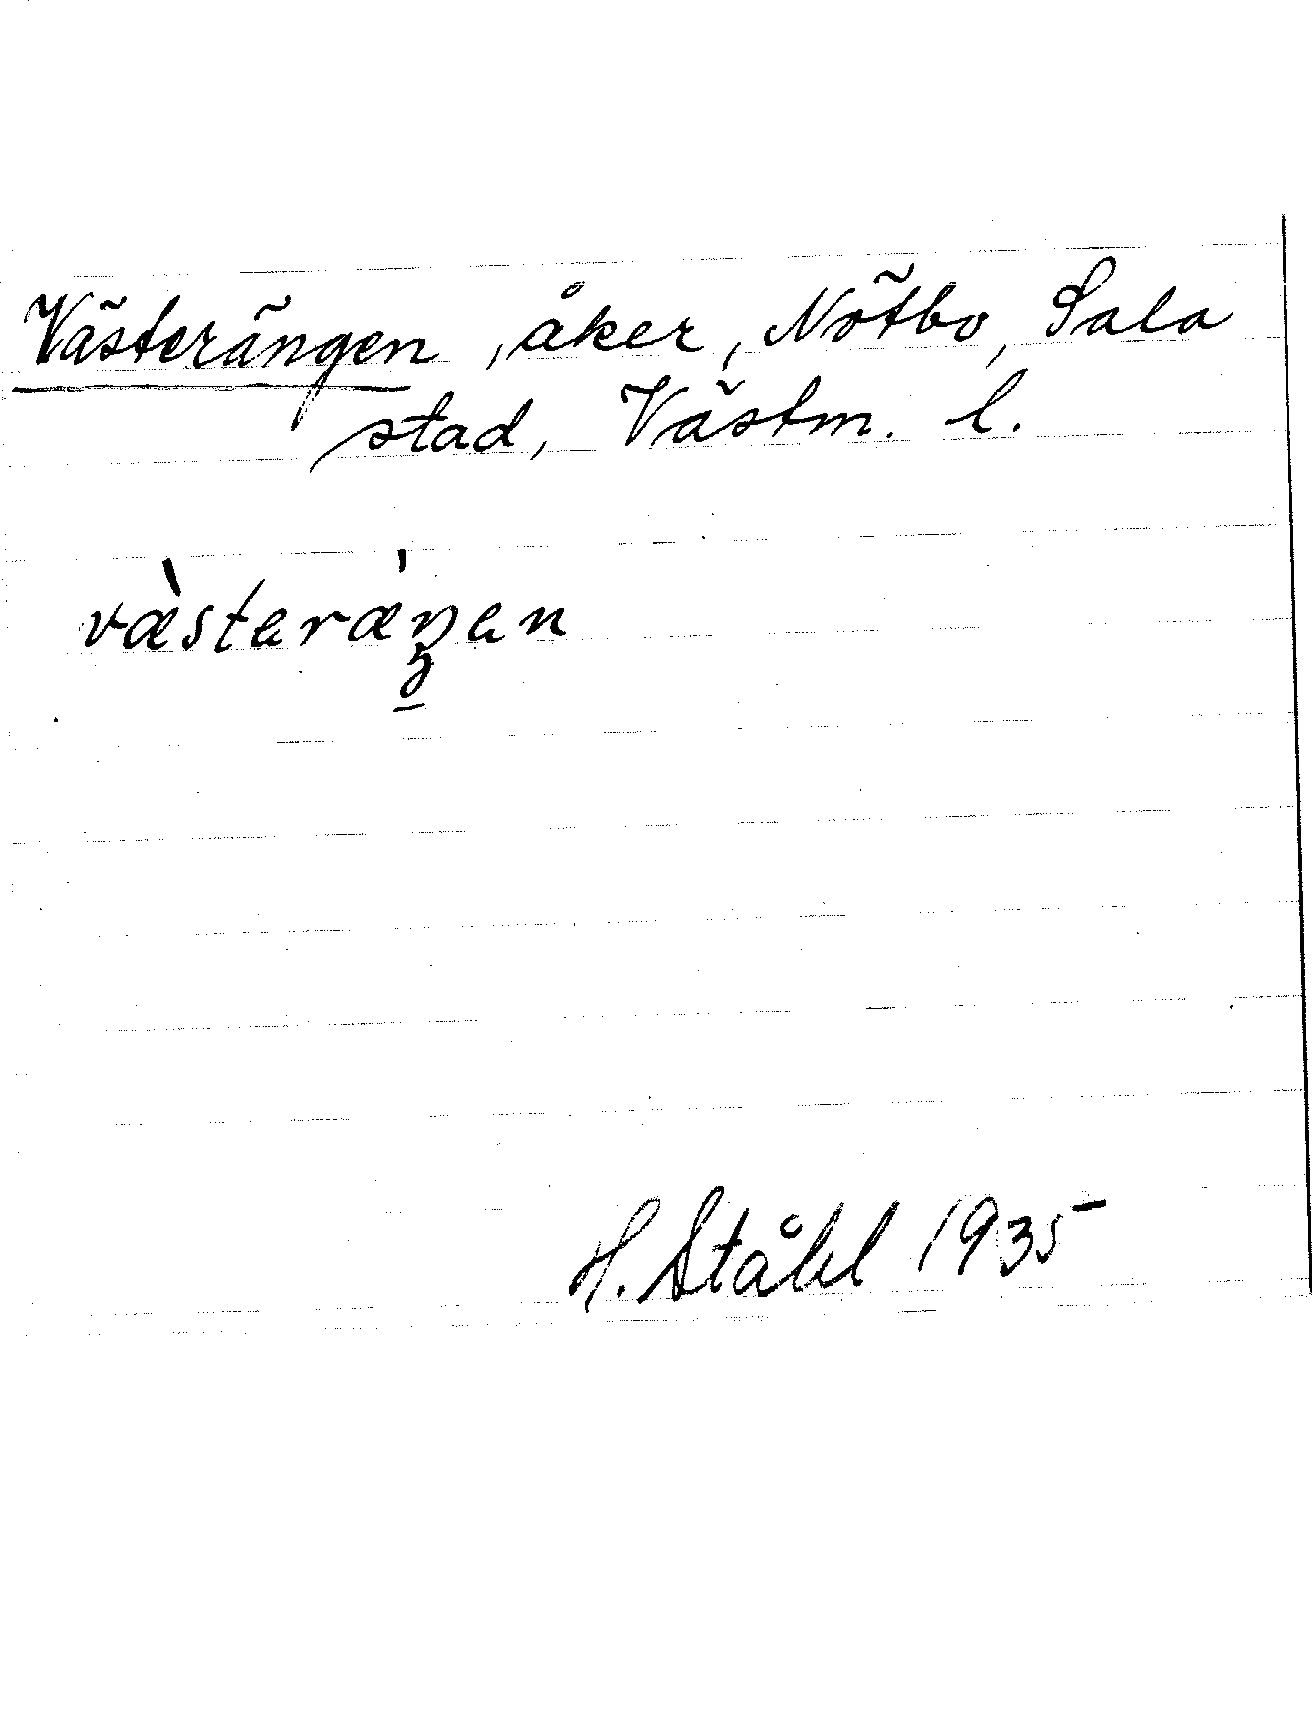 Västerängen, åker, Nötbo, Sala
stad, Västm. l.
væ̀sterǽŋen
H. Ståhl 1935